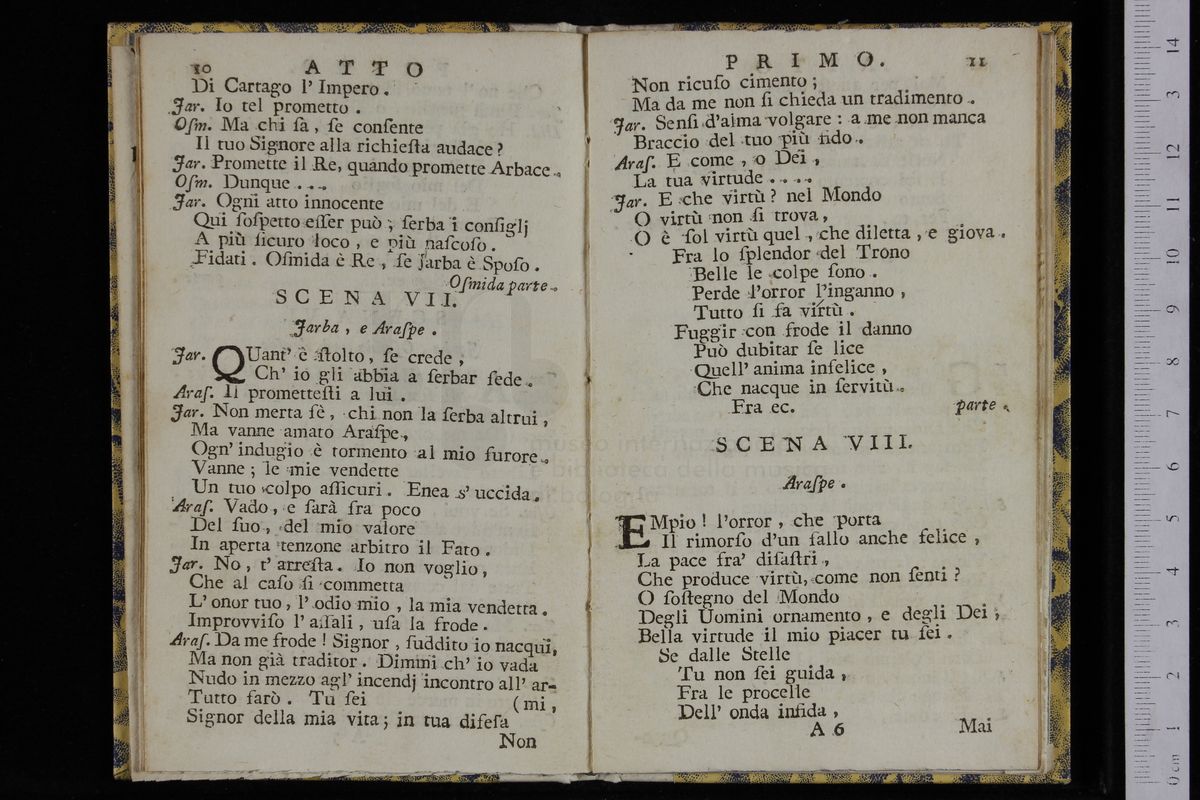 10 ATTO
Di Cartago l' Impero.
Jar. Io tel prometto.
Oſm. Ma chi ſa, ſe conſente
Il tuo Signore alla richieſta audace?
Jar. Promette il Re, quando promette Arbace.
Oſm. Dunque ....
Jar. Ogni atto innocente
Qui ſoſpetto eſſer può; ſerba i conſiglj
A più ſicuro loco, e più naſcoſo.
Fidati. Oſmida è Re, ſe Jarba è Spoſo.
Oſmida parte.
SCENA VII.
Jarba, e Araſpe.
Jar. QUant' è ſtolto, ſe crede,
Ch' io gli abbia a ſerbar fede.
Araſ. Il prometteſti a lui.
Jar. Non merta fè, chi non la ſerba altrui,
Ma vanne amato Araſpe,
Ogn' indugio è tormento al mio furore.
Vanne; le mie vendette
Un tuo colpo aſſicuri. Enea s' uccida.
Araſ. Vado, e ſarà fra poco
Del ſuo, del mio valore
In aperta tenzone arbitro il Fato.
Jar. No, t' arreſta. Io non voglio,
Che al caſo ſi commetta
L' onor tuo, l' odio mio, la mia vendetta.
Improvviſo l' aſſali, uſa la frode.
Araſ. Da me frode! Signor, ſuddito io nacqui,
Ma non già traditor. Dimmi ch' io vada
Nudo in mezzo agl' incendj incontro all' ar-
Tutto farò. Tu ſei (mi,
Signor della mia vita; in tua difeſa
Non
PRIMO. 11
Non ricuſo cimento;
Ma da me non ſi chieda un tradimento.
Jar. Senſi d'alma volgare: a me non manca
Braccio del tuo più fido.
Araſ. E come, o Dei,
La tua virtude ....
Jar. E che virtù? nel Mondo
O virtù non ſi trova,
O è ſol virtù quel, che diletta, e giova.
Fra lo ſplendor del Trono
Belle le colpe ſono.
Perde l'orror l'inganno,
Tutto ſi fa virtù.
Fuggir con frode il danno
Può dubitar ſe lice
Quell' anima infelice,
Che nacque in ſervitù.
Fra ec. parte.
SCENA VIII.
Araſpe.
EMpio! l'orror, che porta
Il rimorſo d'un fallo anche felice,
La pace fra' diſaſtri,
Che produce virtù, come non ſenti?
O ſoſtegno del Mondo
Degli Uomini ornamento, e degli Dei,
Bella virtude il mio piacer tu ſei.
Se dalle Stelle
Tu non ſei guida,
Fra le procelle
Dell' onda infida,
A 6 Mai
museo internazionale
e biblioteca della musica
di bologna
0 cm 1 2 3 4 5 6 7 8 9 10 11 12 13 14